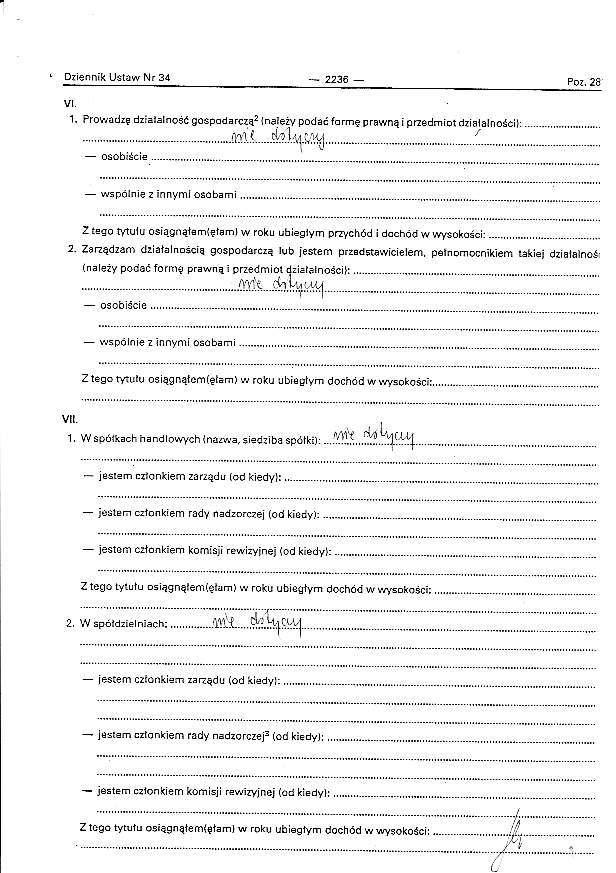 Dziennik Ustaw Nr 34 — 2236 — Poz. 28
VI.
1. Prowadzę działalność gospodarczą² (należy podać formę prawną i przedmiot działalności): 
nie dotyczy
— osobiście
— wspólnie z innymi osobami
Z tego tytułu osiągnąłem(ęłam) w roku ubiegłym przychód i dochód w wysokości:
2. Zarządzam działalnością gospodarczą lub jestem przedstawicielem, pełnomocnikiem takiej działalnoś
(należy podać formę prawną i przedmiot działalności):
nie dotyczy
— osobiście
— wspólnie z innymi osobami
Z tego tytułu osiągnąłem(ęłam) w roku ubiegłym dochód w wysokości:
VII.
1. W spółkach handlowych (nazwa, siedziba spółki): nie dotyczy
— jestem członkiem zarządu (od kiedy):
— jestem członkiem rady nadzorczej (od kiedy):
— jestem członkiem komisji rewizyjnej (od kiedy):
Z tego tytułu osiągnąłem(ęłam) w roku ubiegłym dochód w wysokości:
2. W spółdzielniach: nie dotyczy
— jestem członkiem zarządu (od kiedy):
— jestem członkiem rady nadzorczej³ (od kiedy):
— jestem członkiem komisji rewizyjnej (od kiedy):
Z tego tytułu osiągnąłem(ęłam) w roku ubiegłym dochód w wysokości: